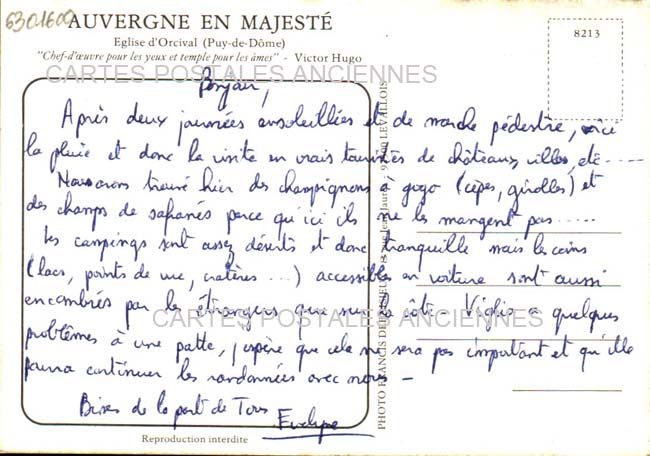 6301600
AUVERGNE EN MAJESTÉ
Eglise d'Orcival (Puy-de-Dôme)
"Chef-d'œuvre pour les yeux et temple pour les âmes" - Victor Hugo
8213
CARTES POSTALES ANCIENNES
Bonjour,
Après deux journées ensoleillées et de marche pédestre, voici
la pluie et donc la visite en vrais touristes de châteaux, villes, etc.....
Nous avons trouvé hier des champignons à gogo (cèpes, girolles) et
des champs de safranés parce qu'ici ils ne les mangent pas.....
Les campings sont assez déserts et donc tranquille mais les coins
(lacs, points de vue, cratères....) accessibles en voiture sont aussi
encombrés par les étrangers que sur la côte. Viglis a quelques
CARTES POSTALES ANCIENNES
problèmes à une patte, j'espère que cela ne sera pas important et qu'elle
pourra continuer les randonnées avec nous -
Bises de la part de Tous
Evelyne
Reproduction interdite
PHOTO FRANCIS DEBAISIEUX Jean Jaurès 92300 LEVALLOIS